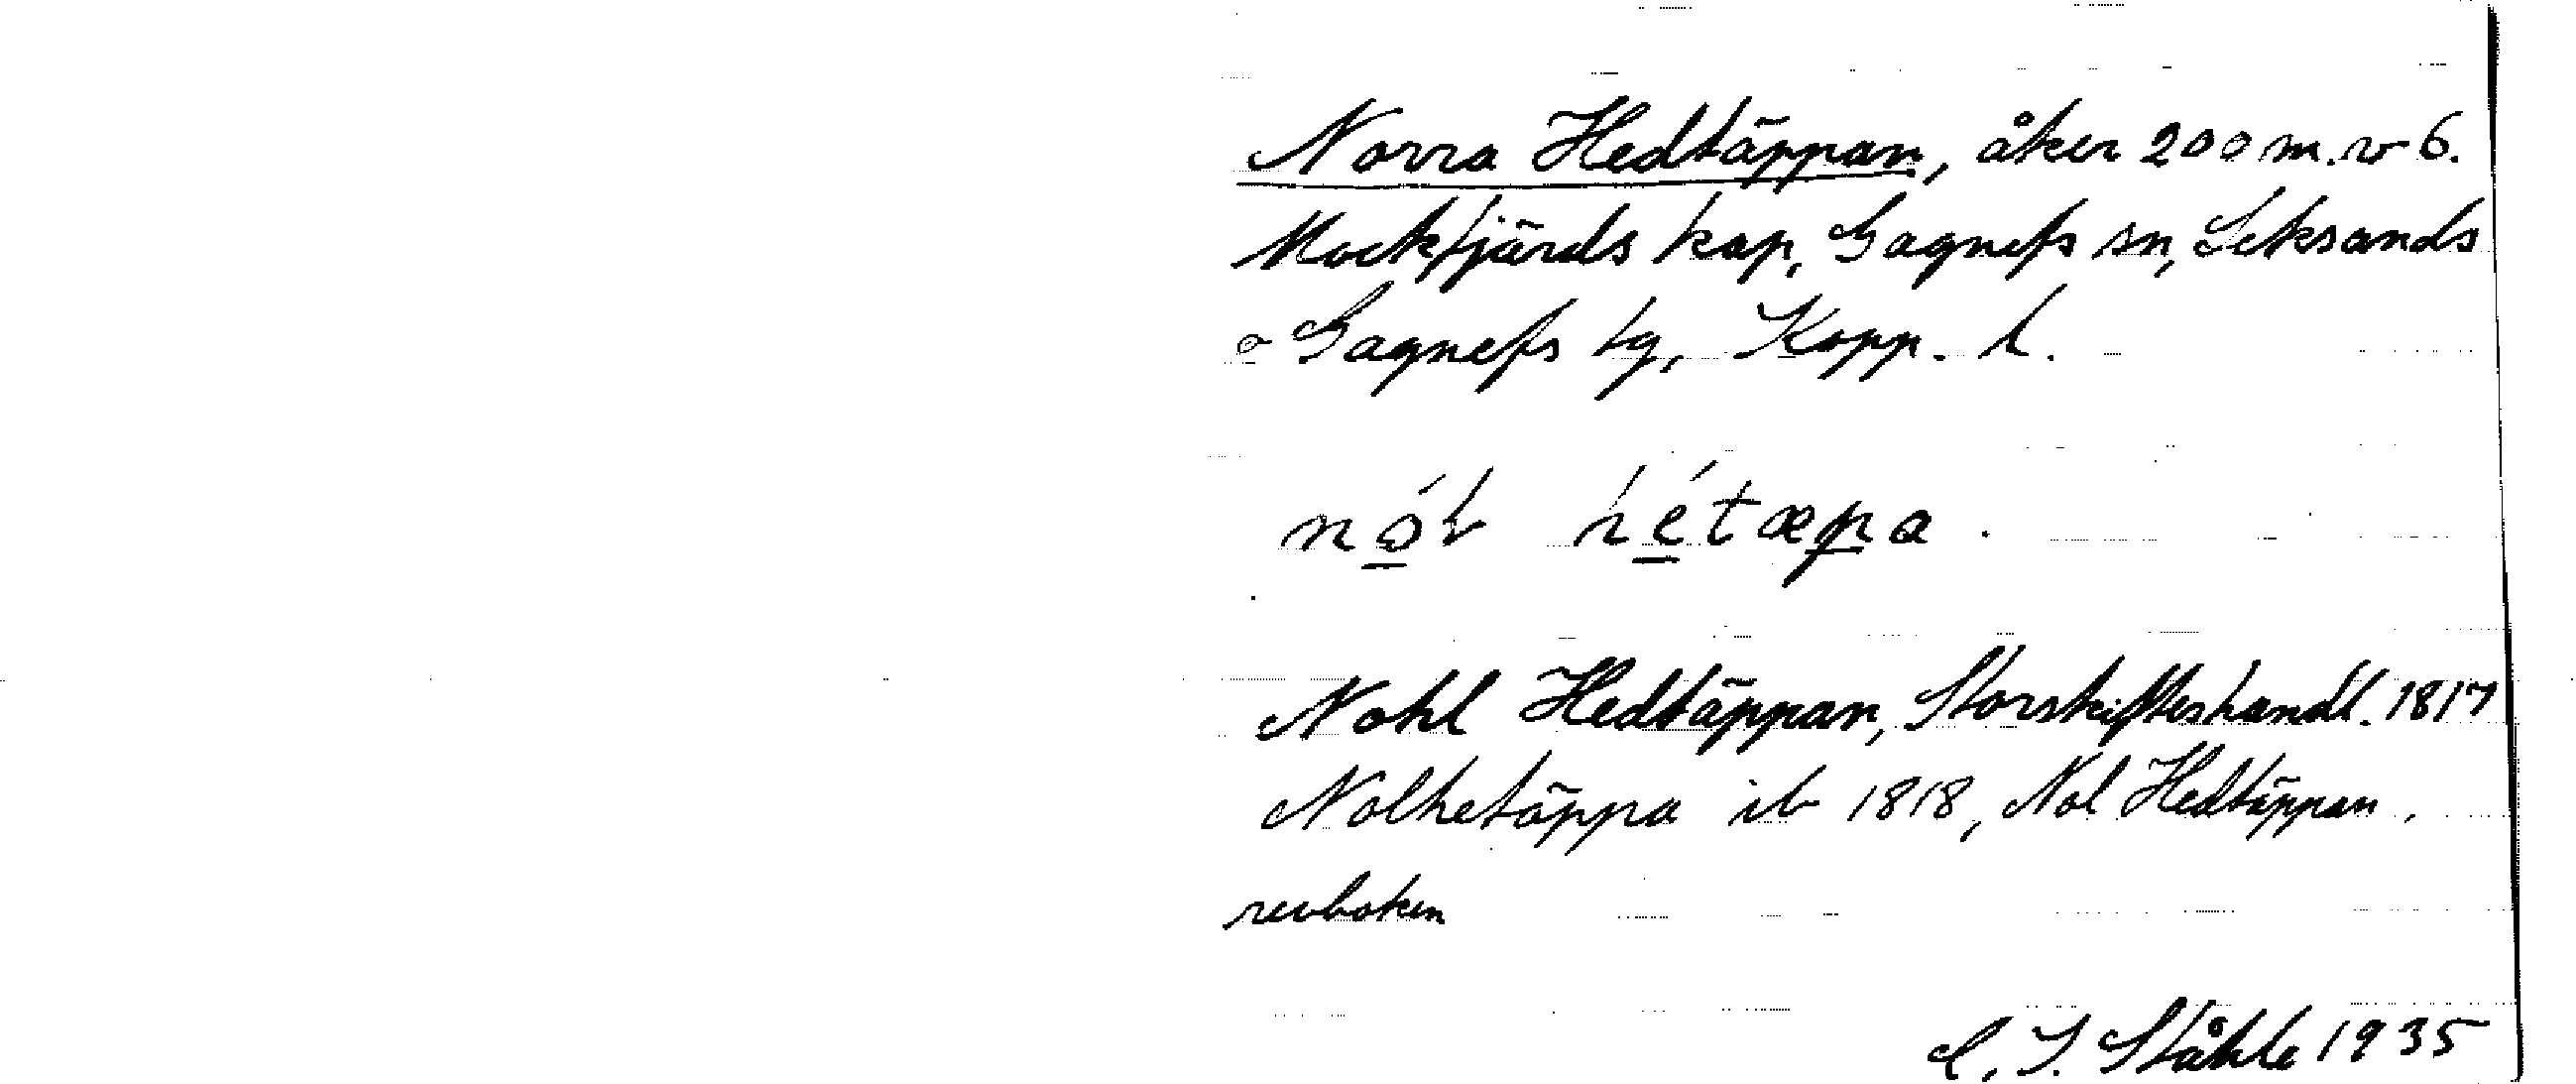 Norra Hedtäppan, åker 200 m. v 6.
Mockfjärds kap, Gagnefs sn, Leksands
o Gagnefs tg, Kopp. l.
hétæpa.
Nohl Hedtäppan, Storskifteshandl. 1817
Nolhetäppa ib 1818, Nol Hedtäppan,
revboken
C. I. Ståhle 1935